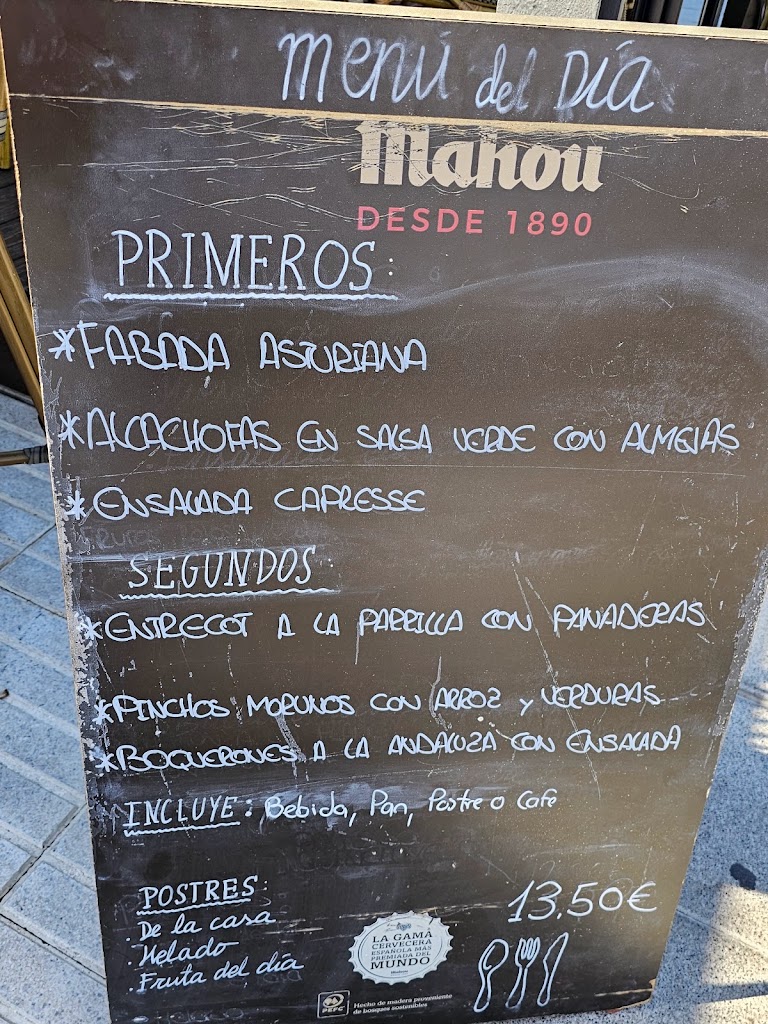 menú del Día
Mahou
DESDE 1890
PRIMEROS:
*FABADA ASTURIANA
*ALCACHOFAS EN SALSA VERDE CON ALMEJAS
*ENSALADA CAPRESSE
SEGUNDOS
*ENTRECOT A LA PARRILLA CON PANADERAS
*PINCHOS MORUNOS CON ARROZ Y VERDURAS
*BOQUERONES A LA ANDALUZA CON ENSALADA
INCLUYE: Bebida, Pan, Postre o Cafe
POSTRES:
De la casa
Helado
Fruta del día
13,50€
LA GAMA
CERVECERA
ESPAÑOLA MÁS
PREMIADA DEL
MUNDO
Mahou
PEFC
Hecho de madera proveniente
de bosques sostenibles